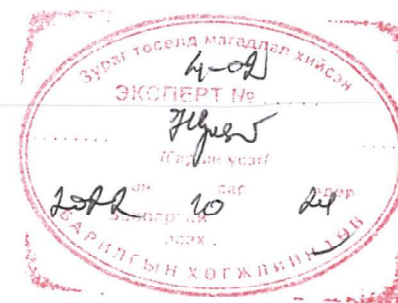 Зураг төсөлд магадлал хийсэн
4-02
ЭКСПЕРТ №
/Гарын үсэг/
2022 он 10 сар 24 өдөр
БАРИЛГЫН ХӨГЖЛИЙН ТӨВ